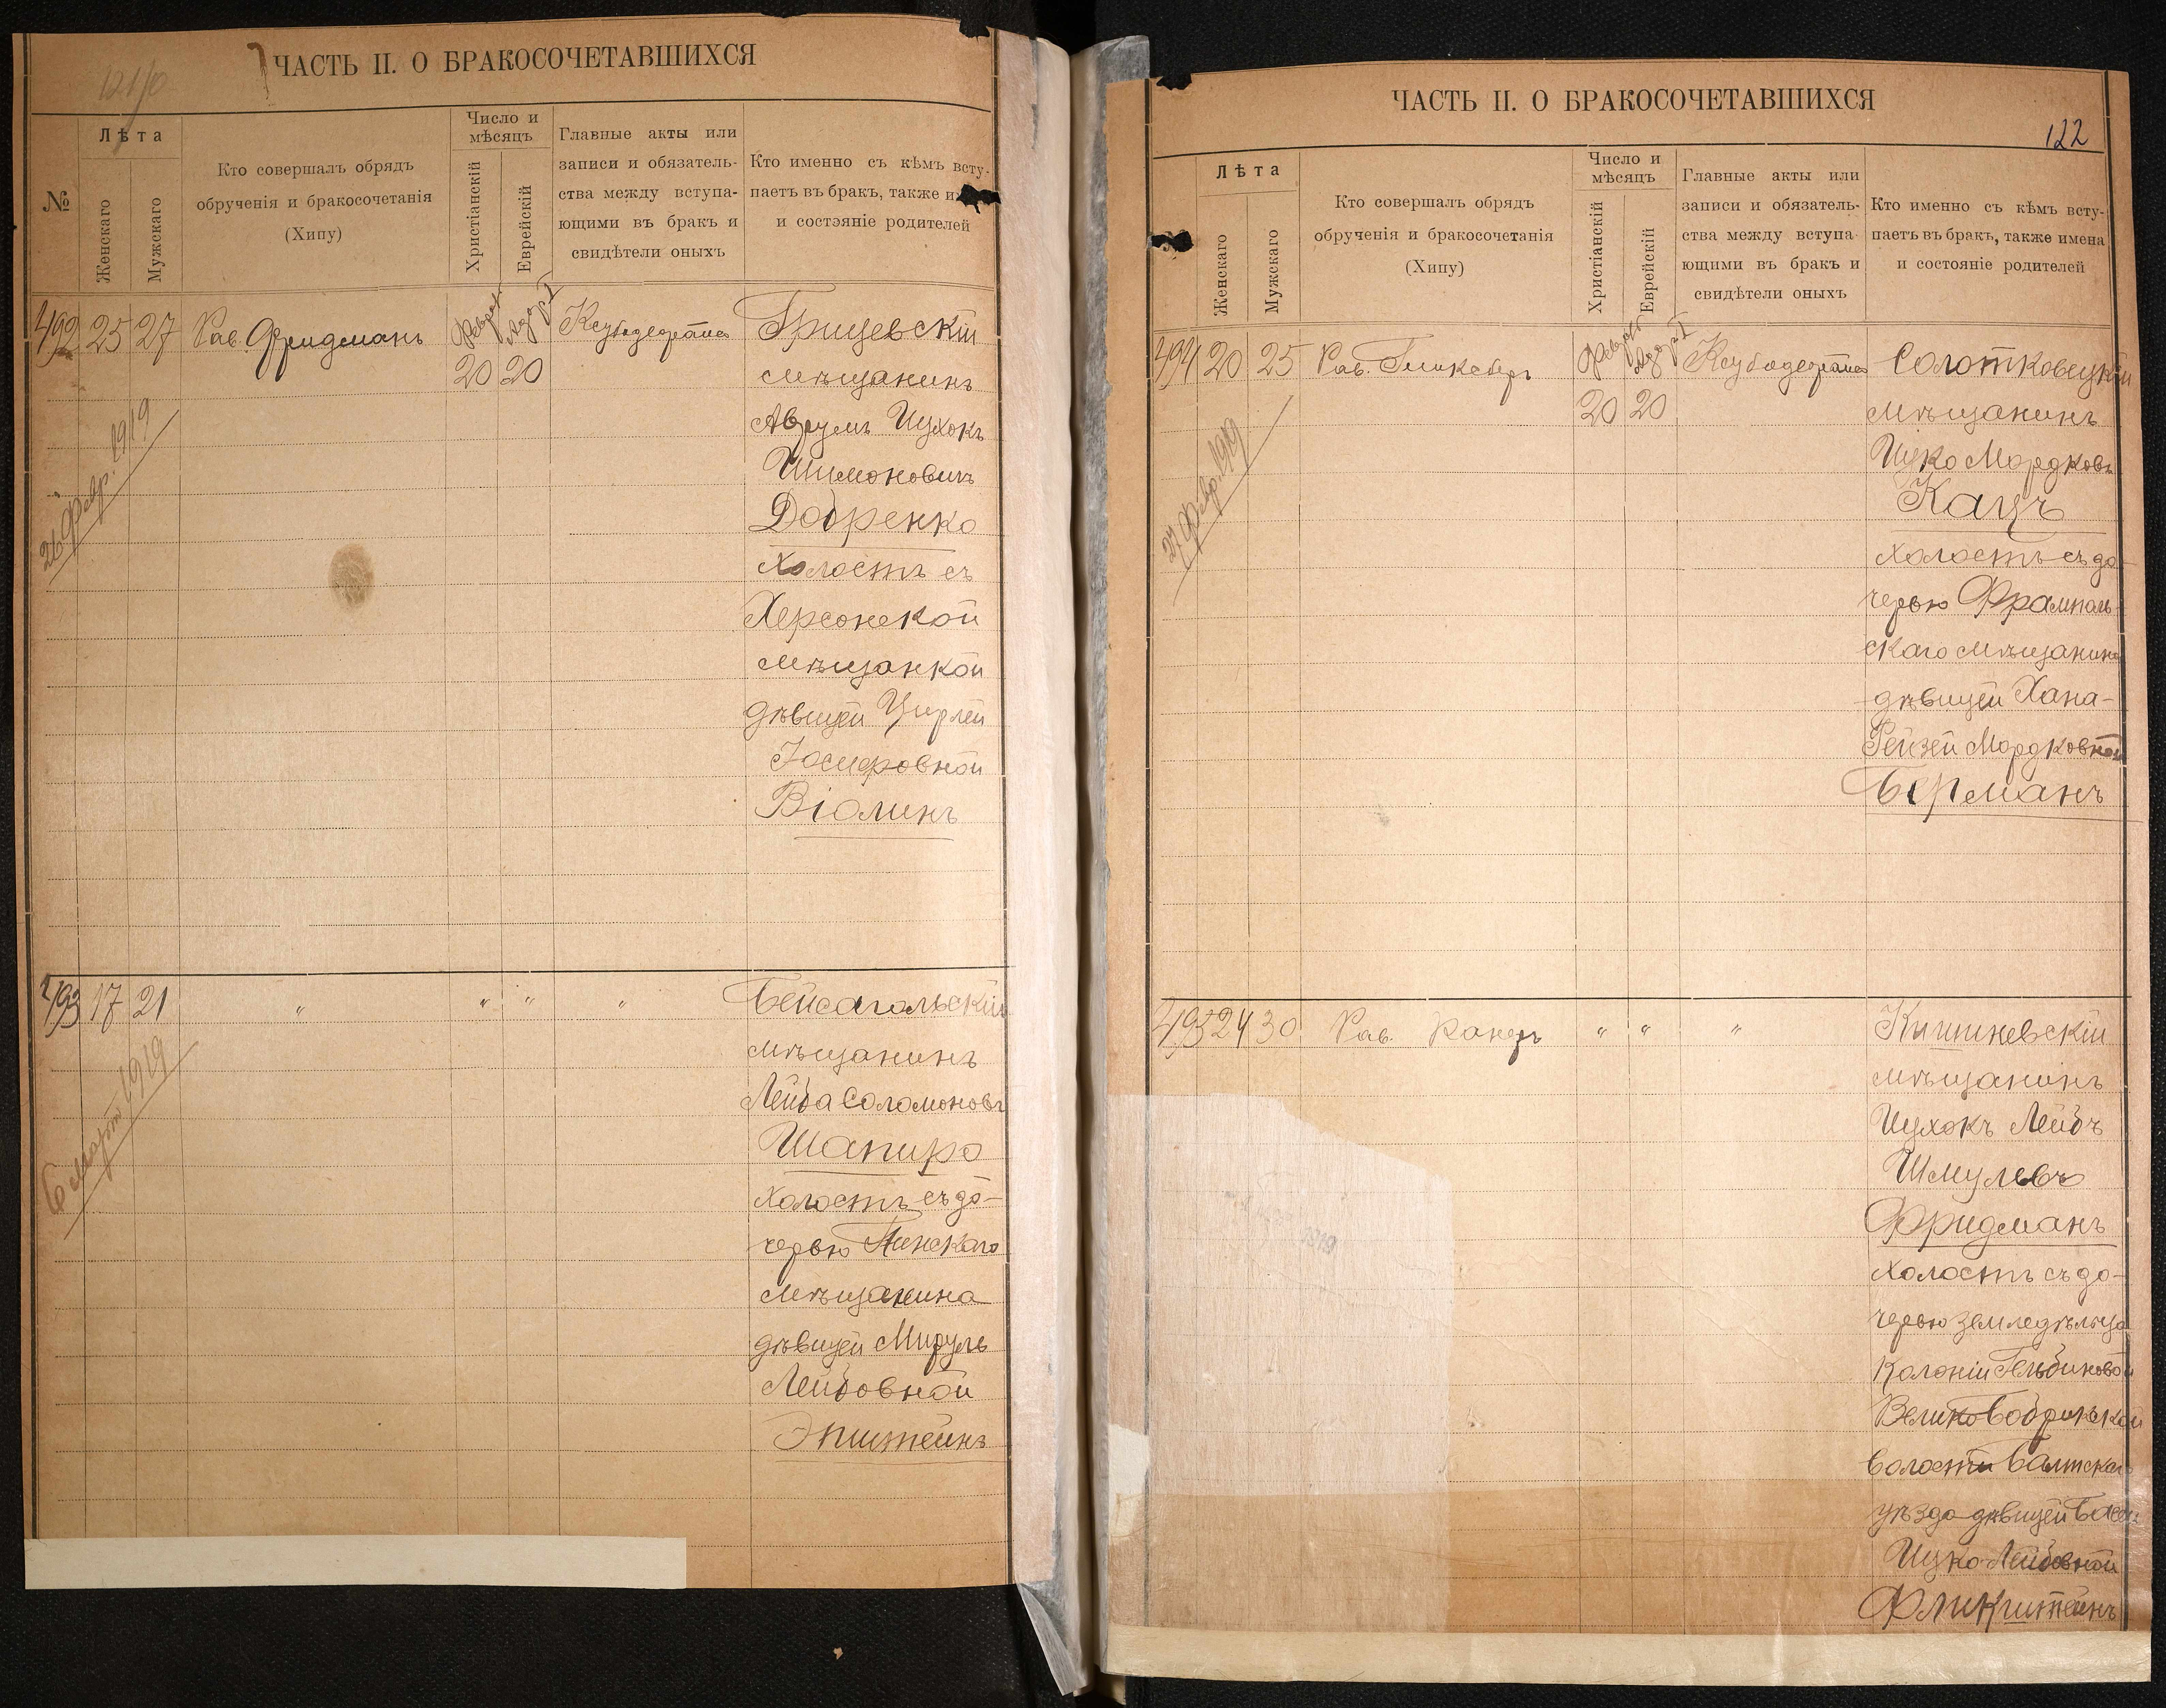 121/о
ЧАСТЬ II. О БРАКОСОЧЕТАВШИХСЯ
№
Лѣта
Женскаго
Мужскаго
Кто совершалъ обрядъ
обрученія и бракосочетанія
(Хипу)
Число и
мѣсяцъ
Христіанскій
Еврейскій
Главные акты или
записи и обязатель-
ства между вступа-
ющими въ бракъ и
свидѣтели оныхъ
Кто именно съ кѣмъ всту-
паетъ въ бракъ, также
и состояніе родителей
492 25 27 Рав. Фридманъ
20 20
Грицевскій
мѣщанинъ
Аврумъ Ицхокъ
Шимоновичъ
Добренко
холостъ съ
Херсонской
мѣщанкой
дѣвицей Цирлей
Іосифовной
Віолинъ
26 Февр. 1919
493 17 21 " " " "
Бейсагольскій
мѣщанинъ
Лейба Соломоновъ
Шапиро
холостъ съ до-
черью Пинскаго
мѣщанина
дѣвицей Мируль
Лейбовной
Эпштейнъ
6 март 1919
ЧАСТЬ II. О БРАКОСОЧЕТАВШИХСЯ
122
Лѣта
Женскаго
Мужскаго
Кто совершалъ обрядъ
обрученія и бракосочетанія
(Хипу)
Число и
мѣсяцъ
Христіанскій
Еврейскій
Главные акты или
записи и обязатель-
ства между вступа-
ющими въ бракъ и
свидѣтели оныхъ
Кто именно съ кѣмъ всту-
паетъ въ бракъ, также имена
и состояніе родителей
494 20 25 Рав.
20 20
Солотковецкій
мѣщанинъ
Ицко Мордковъ
Кацъ
холостъ съ до-
черью Фрампаль-
скаго мѣщанина
дѣвицей Хана-
Рейзей Мордковной
Берманъ
27 Февр. 1919
495 24 30 Рав. Канеръ " " "
Кишиневскій
мѣщанинъ
Ицхокъ Лейбъ
Шмулевъ
Фридманъ
холостъ съ до-
черью земледѣльца
колоніи Гельбиновой
Волости Балтскаго
уѣзда дѣвицей
Ицко-Лейбовной